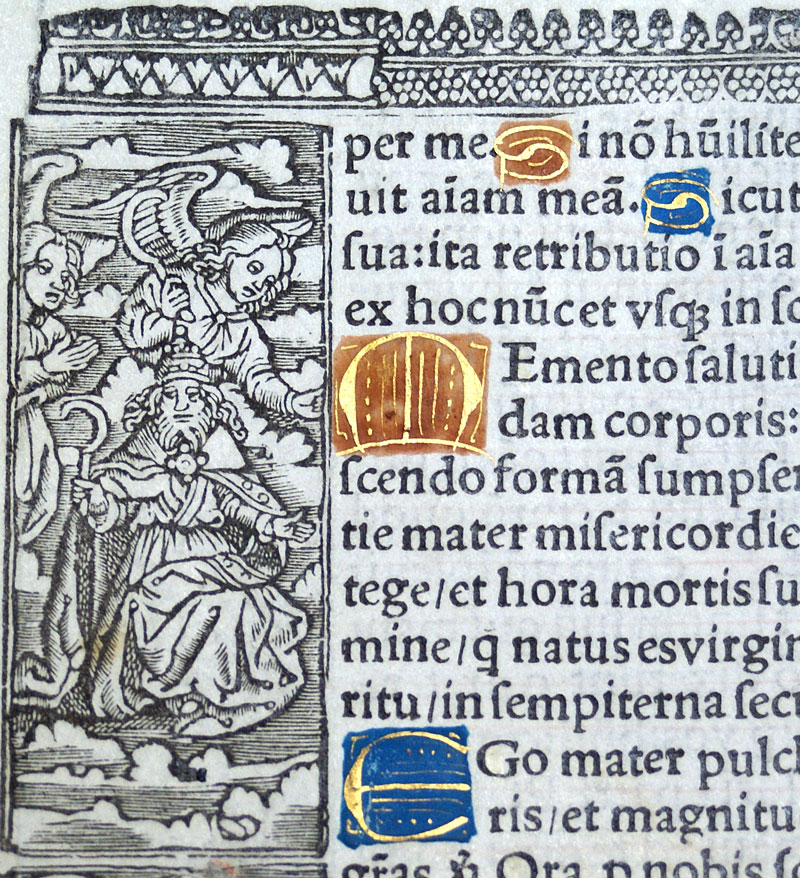 per me. Si nõ hũilite
uit aĩam meã. Sicut
ſua: ita retributio ĩ aĩa
ex hoc nũc et vſqꝫ in ſe
MEmento ſaluti
dam corporis:
ſcendo formã ſumpſer
tie mater miſericordie
tege/et hora mortis ſu
mine/q̃ natus es virgin
ritu/in ſempiterna ſecu
EGo mater pulch
ris/et magnitu
gr̃as. Ora p nobis ſc